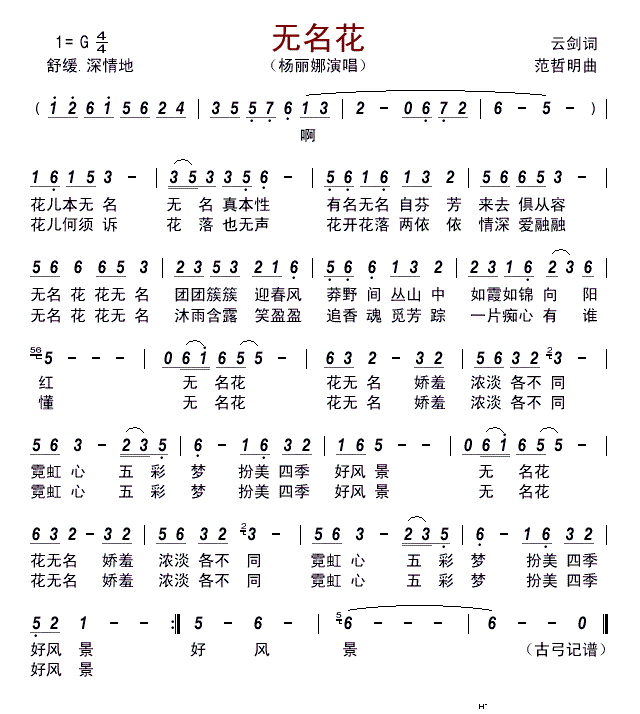 无名花
1= G 4/4
云剑词
舒缓.深情地
（杨丽娜演唱）
范哲明曲
( 1 2 6 1 5 6 2 4 | 3 5 5 7 6 1 3 | 2 - 0 6 7 2 | 6 - 5 - ) |
啊
1 6 1 5 3 - | 3 5 3 3 5 5 - | 5 6 1 6 1 3 2 | 5 6 6 5 2 - |
花儿本无名 无 名 真本性 有名无名 自芬 芳 来去 俱从容
花儿何须 诉 花 落 也无声 花开花落 两依 依 情深 爱融融
5 6 6 6 5 3 | 2 3 5 3 2 1 6 | 5 6 6 1 6 5 | 2 3 1 6 2 3 6 |
无名 花 花无 名 团团簇簇 迎春风 莽野 间 丛山 中 如霞如锦 向 阳
无名 花 花无 名 沐雨含露 笑盈盈 追香 魂 觅芳 踪 一片痴心 有 谁
56 5 - - | 0 6 1 6 5 5 - | 6 3 2 - 3 2 | 5 6 3 2 2 3 - |
红 无 名花 花无 名 娇羞 浓淡 各不 同
懂 无 名花 花无 名 娇羞 浓淡 各不 同
5 6 3 - 2 3 5 | 6 - 1 6 3 2 | 5 2 1 - - | 0 6 1 6 5 5 - |
霓虹 心 五 彩 梦 扮美 四季 好风 景 无 名花
霓虹 心 五 彩 梦 扮美 四季 好风 景 无 名花
6 3 2 2 - 3 2 | 5 6 3 2 2 3 - | 5 6 3 - 2 3 5 | 6 - 1 6 3 2 |
花无名 娇羞 浓淡 各不 同 霓虹 心 五 彩 梦 扮美 四季
花无名 娇羞 浓淡 各不 同 霓虹 心 五 彩 梦 扮美 四季
5 2 1 - - :| 5 - 6 - | 5 6 - - | 6 - - 0 |
好风 景 好 风 景 （古弓记谱）
好风 景